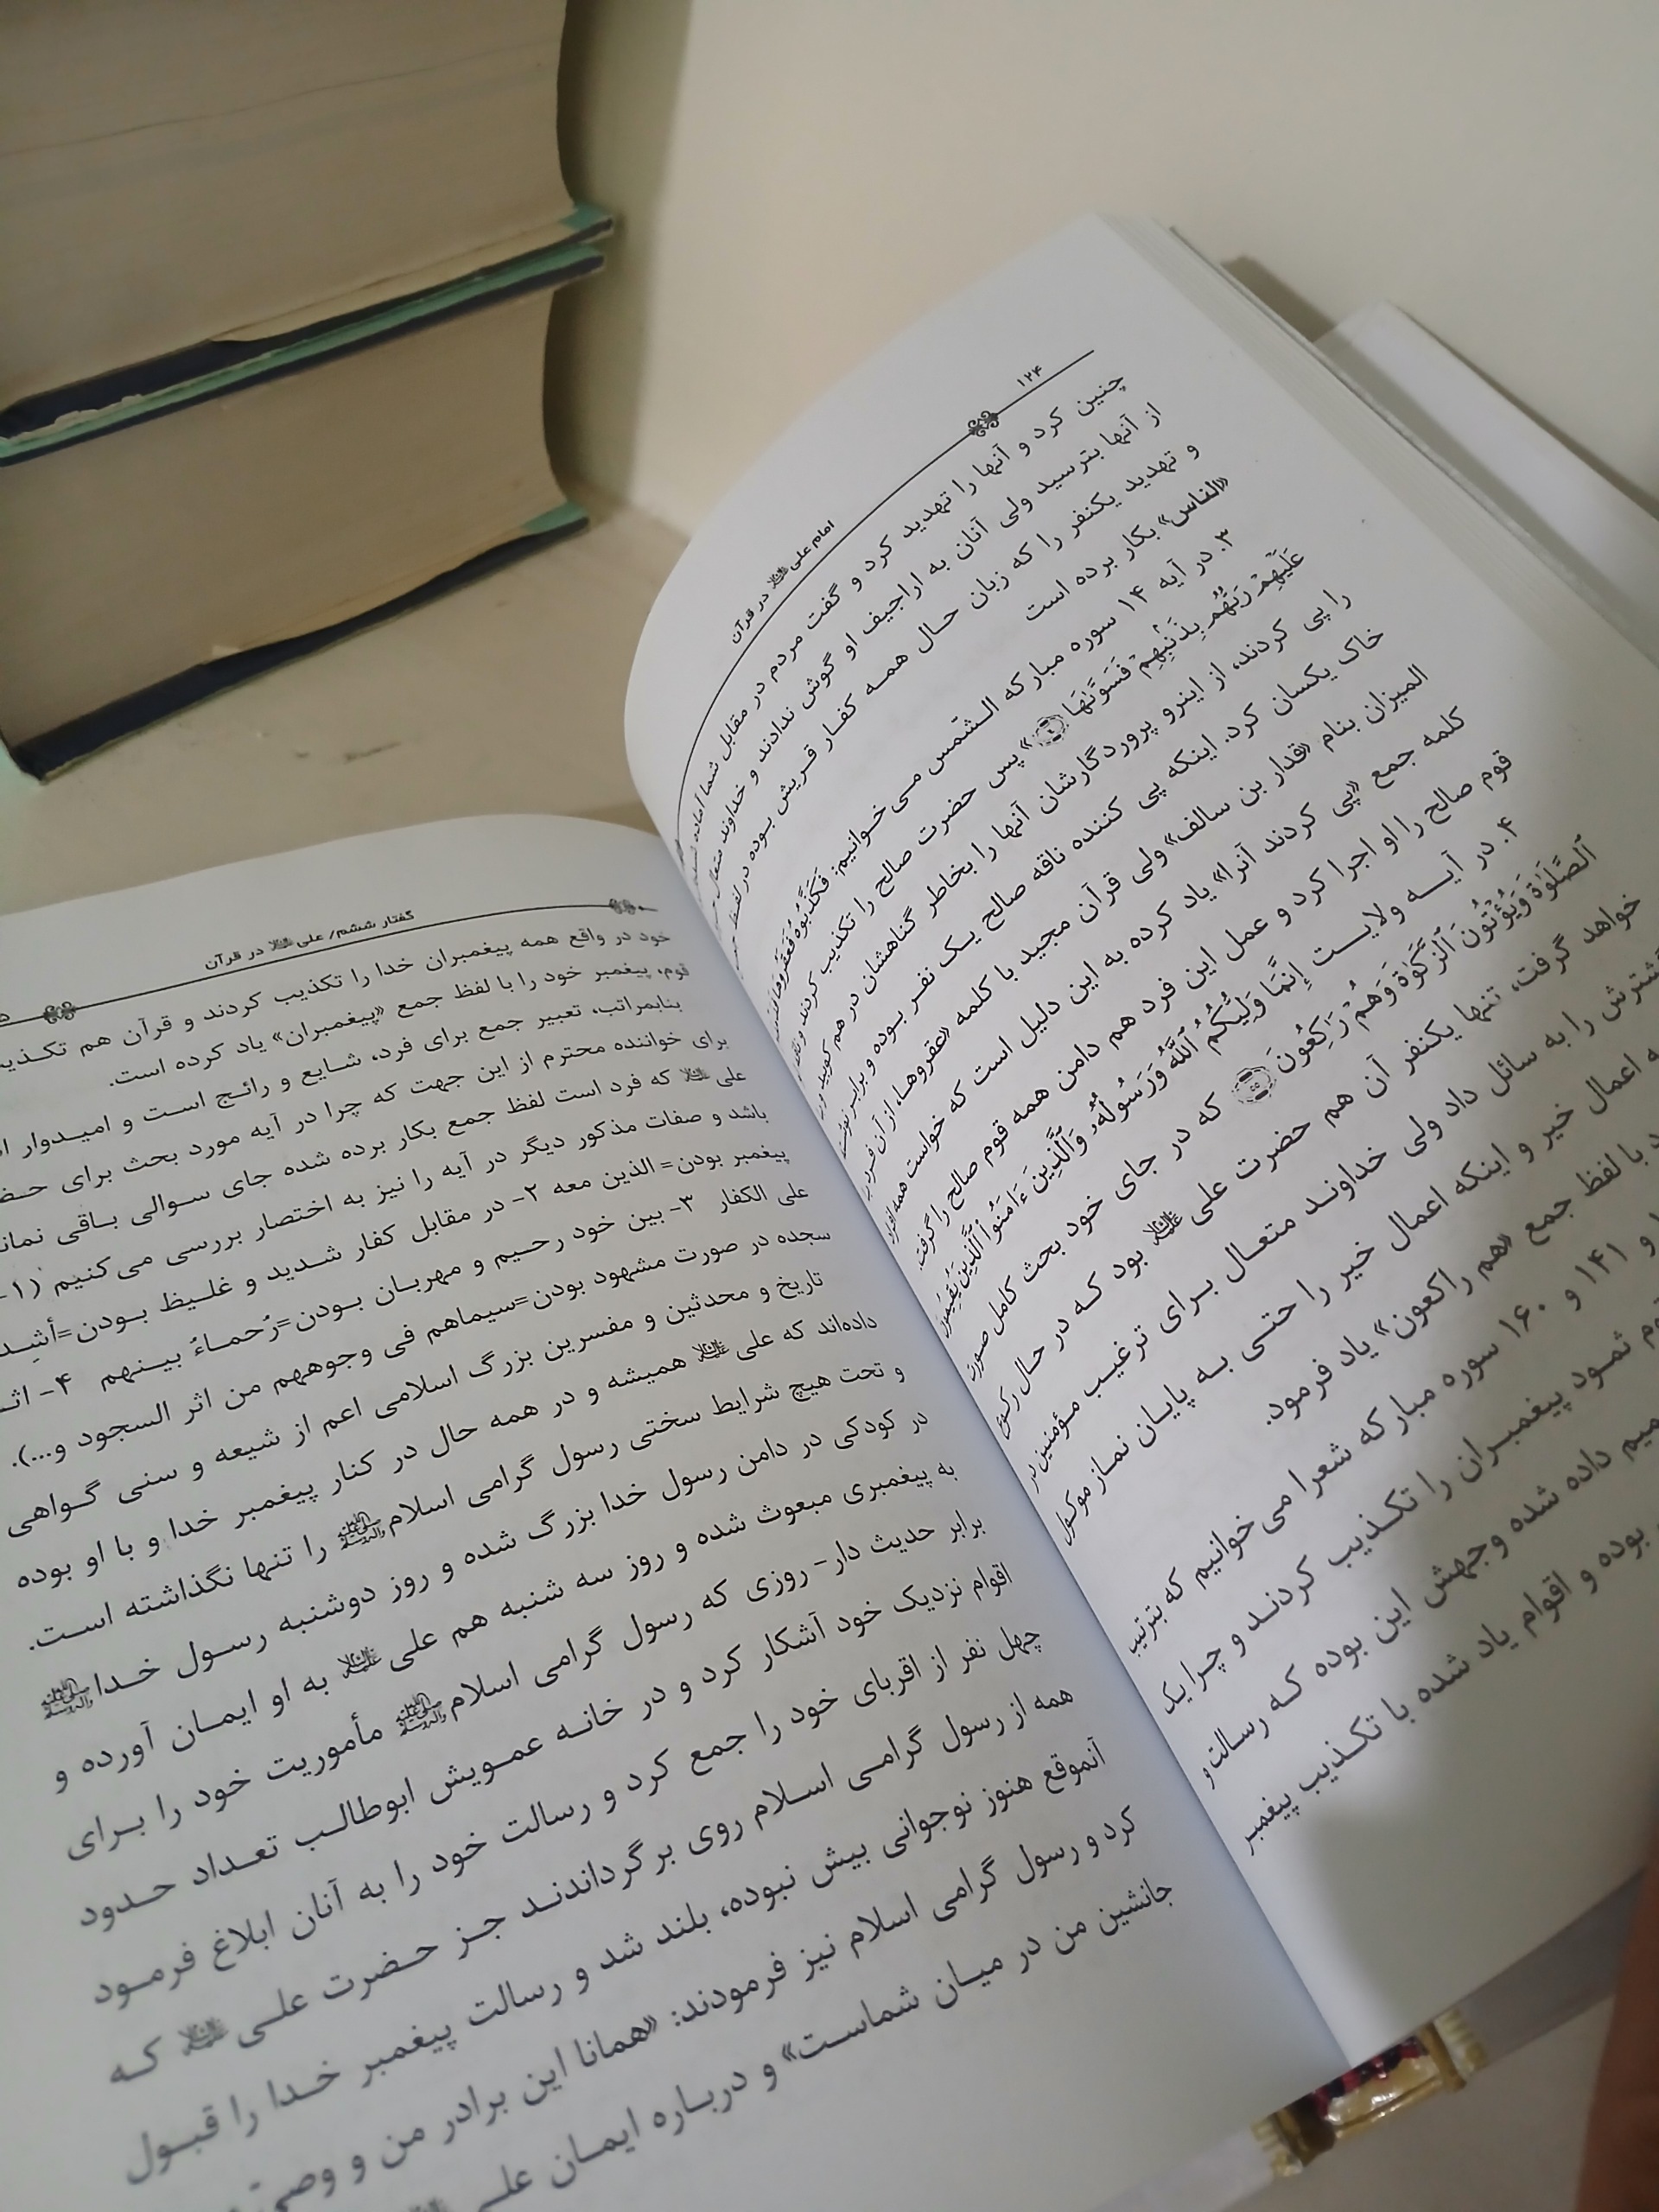 ۱۲۴
امام علی در قرآن
چنین کرد و آنها را تهدید کرد و گفت مردم در مقابل شما آماده
از آنها بترسید ولی آنان به اراجیف او گوش ندادند و خداوند متعال
و تهدید یکنفر را که زبان حال همه کفار قریش بوده در لفظ
«الناس» بکار برده است
۳. در آیه ۱۴ سوره مبارکه الشّمس می‌خوانیم: فَكَذَّبُوهُ فَعَقَرُوهَا
عَلَيْهِمْ رَبُّهُم بِذَنۢبِهِمْ فَسَوَّىٰهَا» پس حضرت صالح را تکذیب کردند و
را پی کردند، از اینرو پروردگارشان آنها را بخاطر گناهشان در هم کوبید و
خاک یکسان کرد. اینکه پی کننده ناقه صالح یک نفر بوده و برابر نوشته
المیزان بنام «قدار بن سالف» ولی قرآن مجید با کلمه «عقروها» از آن
کلمه جمع «پی کردند آنرا» یاد کرده به این دلیل است که خواست همه
قوم صالح را او اجرا کرد و عمل این فرد هم دامن همه قوم صالح را گرفت.
۴. در آیه ولایت إِنَّمَا وَلِيُّكُمُ ٱللَّهُ وَرَسُولُهُۥ وَٱلَّذِينَ ءَامَنُوا۟ ٱلَّذِينَ يُقِيمُونَ
ٱلصَّلَوٰةَ وَيُؤْتُونَ ٱلزَّكَوٰةَ وَهُمْ رَٰكِعُونَ که در جای خود بحث کامل صورت
خواهد گرفت، تنها یکنفر آن هم حضرت علی بود که در حال رکوع
را به سائل داد ولی خداوند متعال برای ترغیب مؤمنین
اعمال خیر و اینکه اعمال خیر را حتی به پایان نماز موکول
با لفظ جمع «هم راکعون» یاد فرمود.
و ۱۴۱ و ۱۶۰ سوره مبارکه شعرا می‌خوانیم که بترتیب
ثمود پیغمبران را تکذیب کردند و چرا یک
داده شده وجهش این بوده که رسالت و
بوده و اقوام یاد شده با تکذیب پیغمبر
گفتار ششم/ علی در قرآن
خود در واقع همه پیغمبران خدا را تکذیب کردند و قرآن هم
قوم، پیغمبر خود را با لفظ جمع «پیغمبران» یاد کرده است.
بنابمراتب، تعبیر جمع برای فرد، شایع و رائج است و امیدوار
برای خواننده محترم از این جهت که چرا در آیه مورد بحث برای
علی که فرد است لفظ جمع بکار برده شده جای سوالی باقی
باشد و صفات مذکور دیگر در آیه را نیز به اختصار بررسی می‌کنیم (۱-
پیغمبر بودن= الذین معه ۲- در مقابل کفار شدید و غلیظ بودن=
علی الکفار ۳- بین خود رحیم و مهربان بودن=رُحماءُ بینهم ۴-
سجده در صورت مشهود بودن=سیماهم فی وجوههم من اثر السجود و...).
تاریخ و محدثین و مفسرین بزرگ اسلامی اعم از شیعه و سنی گواهی
داده‌اند که علی همیشه و در همه حال در کنار پیغمبر خدا و با او بوده
و تحت هیچ شرایط سختی رسول گرامی اسلام را تنها نگذاشته است.
در کودکی در دامن رسول خدا بزرگ شده و روز دوشنبه رسول خدا
به پیغمبری مبعوث شده و روز سه شنبه هم علی به او ایمان آورده و
برابر حدیث دار- روزی که رسول گرامی اسلام مأموریت خود را برای
اقوام نزدیک خود آشکار کرد و در خانه عمویش ابوطالب تعداد حدود
چهل نفر از اقربای خود را جمع کرد و رسالت خود را به آنان ابلاغ فرمود
همه از رسول گرامی اسلام روی برگرداندند جز حضرت علی که
آنموقع هنوز نوجوانی بیش نبوده، بلند شد و رسالت پیغمبر خدا را قبول
کرد و رسول گرامی اسلام نیز فرمودند: «همانا این برادر من و
جانشین من در میان شماست» و درباره ایمان علی